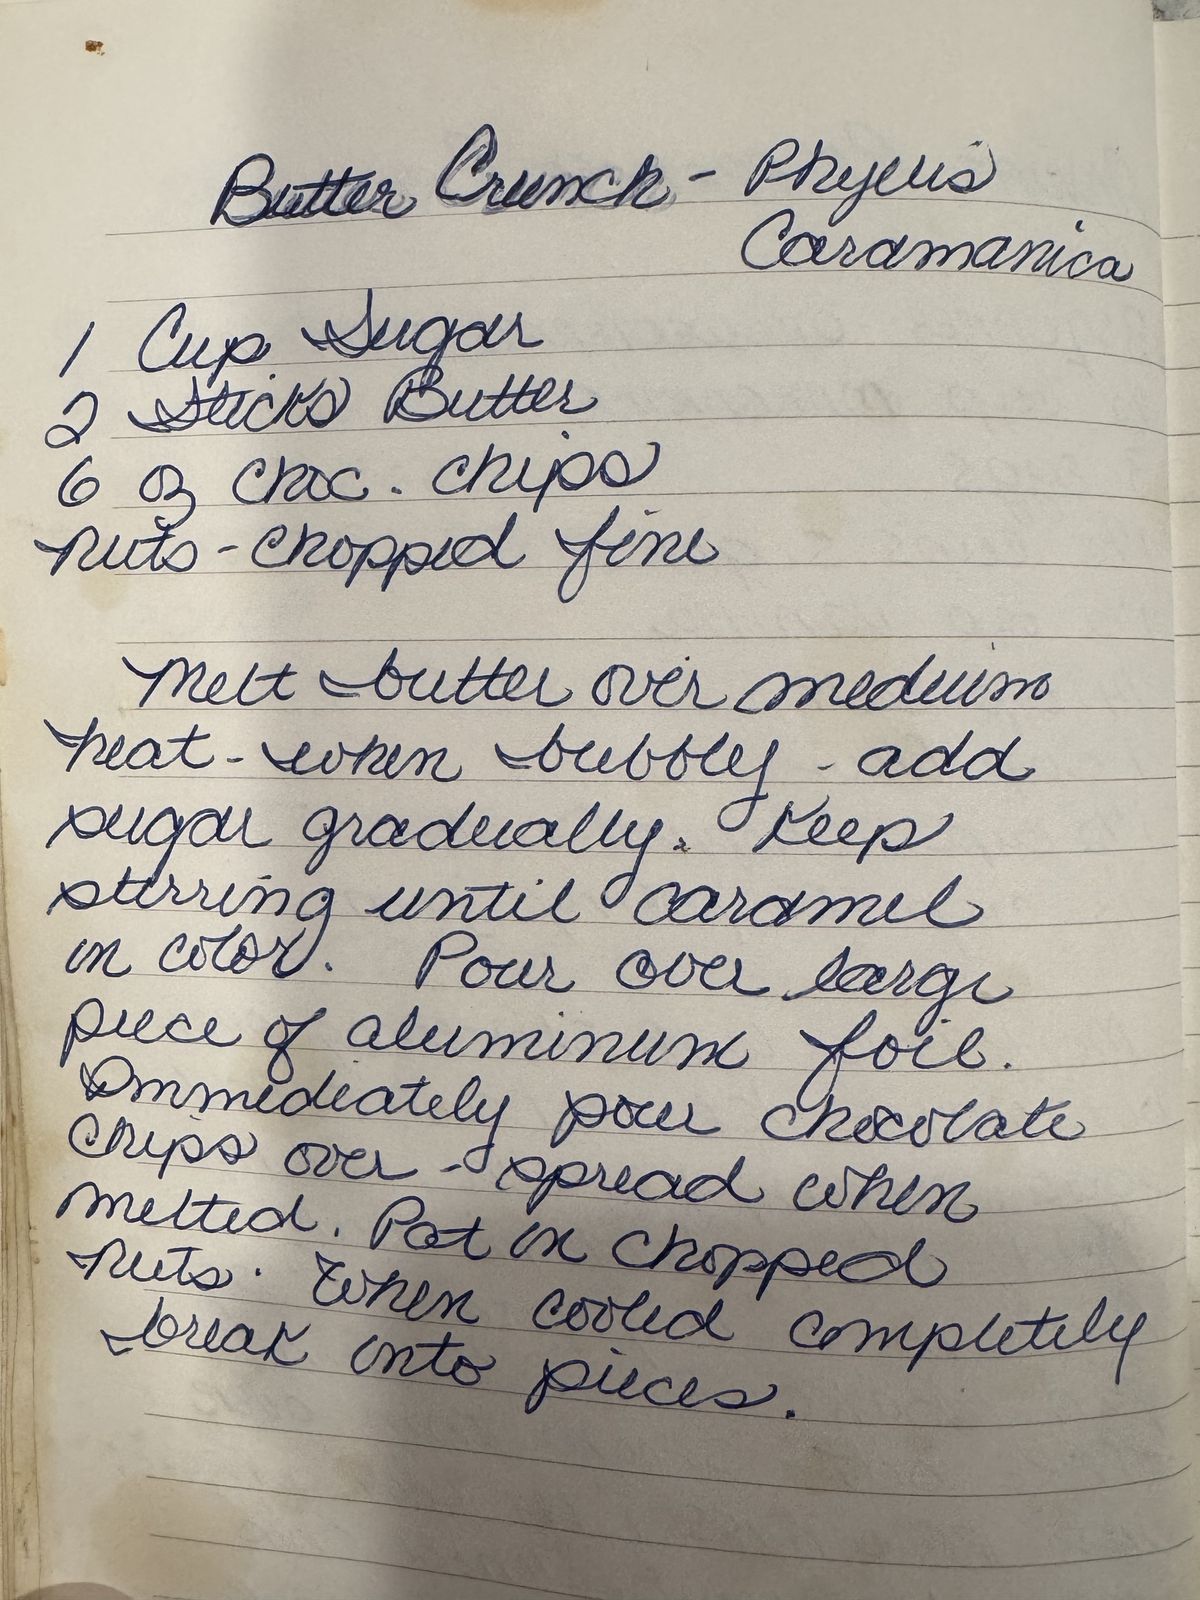 Butter Crunch - Phyllis
Caramanica
1 Cup Sugar
2 Sticks Butter
6 oz choc. chips
nuts - chopped fine
Melt butter over medium
heat - when bubbly - add
sugar gradually. Keep
stirring until caramel
in color. Pour over large
piece of aluminum foil.
Immediately pour chocolate
chips over - spread when
melted. Pat in chopped
nuts. When cooled completely
break into pieces.